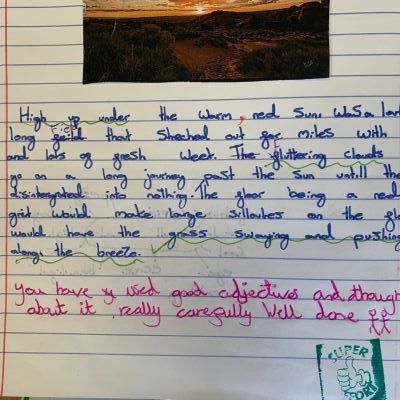 High up under the warm, red Sun. Was a
long field that Streched out for miles with
and lots of fresh week. The fluttering clouds
go on a long journey past the sun untill the
disintegrated into nothing. The floor being a red
grit would make large silloutes on the
would have the grass swaying and pushing
along the breeze.
You have used good adjectives and
about it really carefully Well done
SUPER